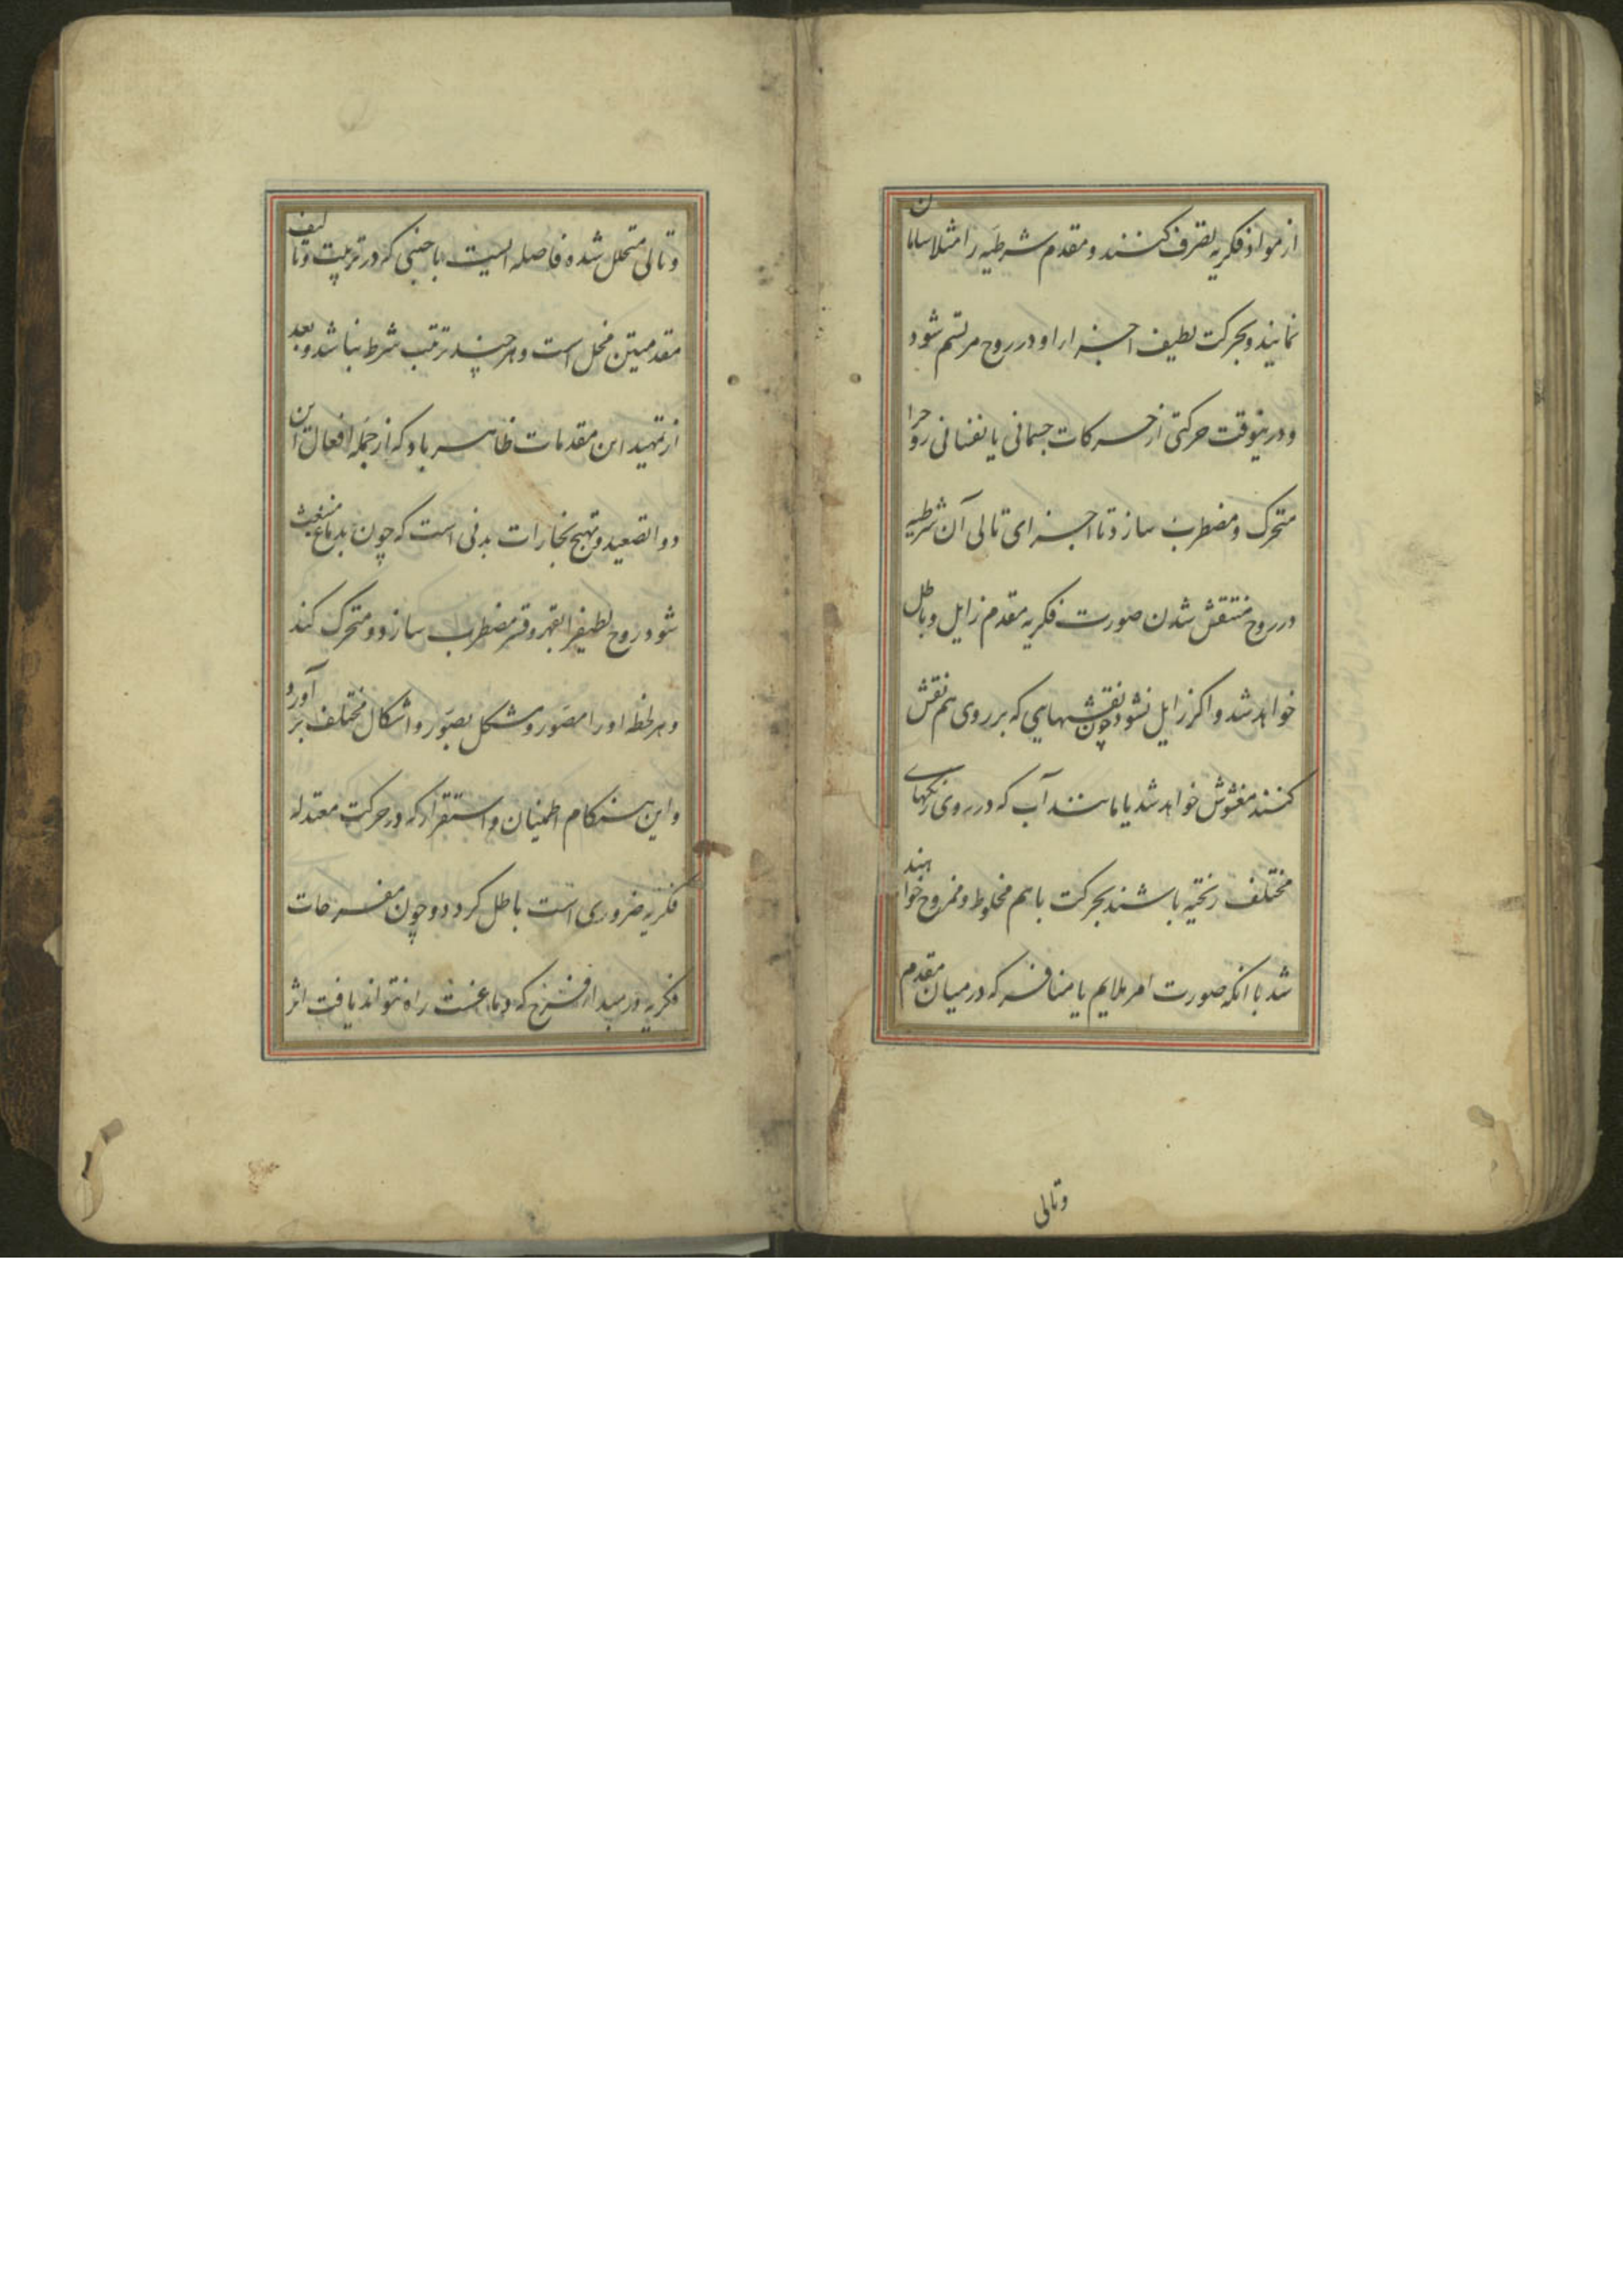 از مواد فکریه تصرف کنند و مقدم شرطیه را مثلا
نمایند و بحرکت لطیف اجزار او در روح مرتسم شود
و درینوقت حرکتی از حرکات جسمانی یا نفسانی روحرا
متحرک و مضطرب سازد تا اجزای تالی آن شرطیه
در روح منتقش شدن صورت فکریه مقدم زایل و باطل
خواهد شد و اکر زایل نشود چون نقشهایی که بر روی هم نقش
کنند مغشوش خواهد شد یا مانند آب که در روی رنکهای
مختلف ریخته باشند بحرکت باهم مخلوط و ممزوج خواهند
شد با انکه صورت امر ملایم یا منافر که در میان مقدم
وتالی
و تالی متخلل شده فاصله ایست باجنبی که در ترتیب و تالیف
مقدمیتن مخل است و هر چند ترتب شرط نباشد و بعد
از تمهید این مقدمات ظاهر باد که از جمله افعال این
دوا تصعید و تهیج بخارات بدنی است که چون بدماغ منبعث
شود روح لطیفرا بقهر و قسر مضطرب سازد و متحرک کند
و هر لحظه اورا مصور و مشکل بصور و اشکال مختلف بر آورد
و این هنکام اطمینان و استقرار که در حرکت معتدله
فکریه ضروری است باطل کردد و چون مفرحات
فکریه در مبدا فرح که دماغست راه نتواند یافت اثر